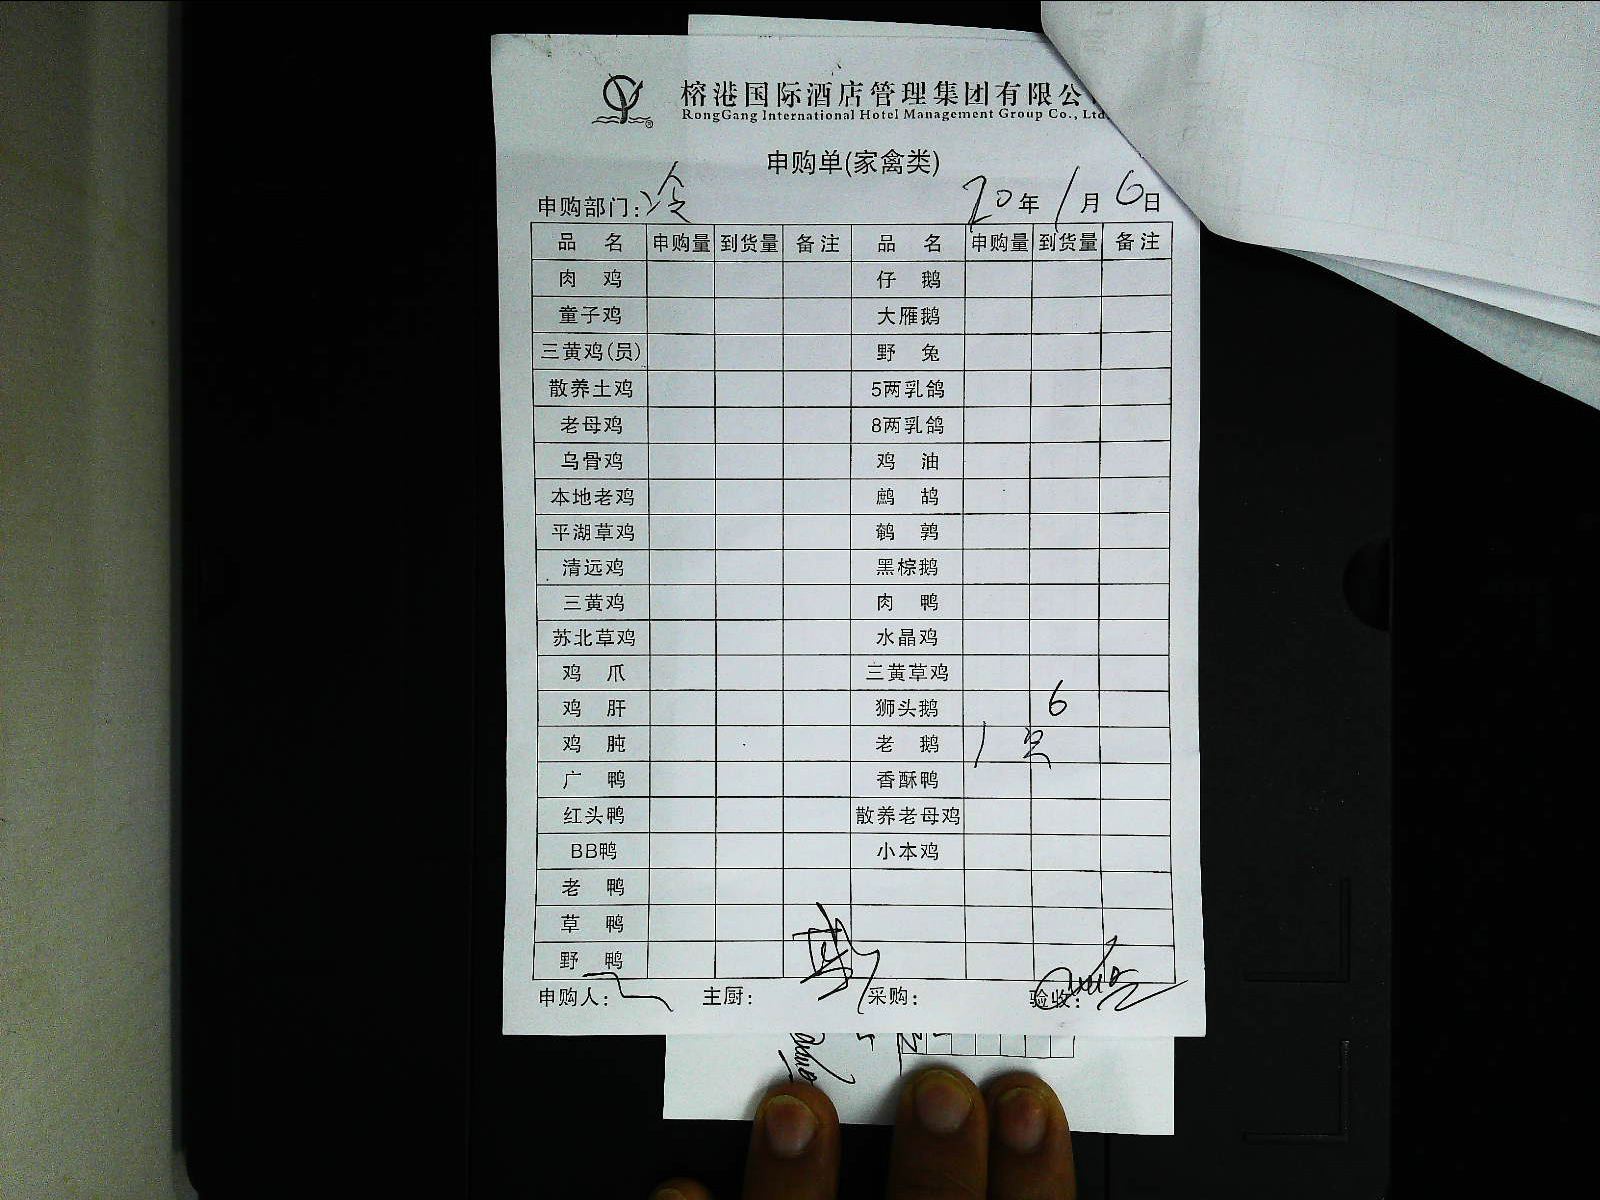 榕港国际酒店管理集团有限公
RongGang International Hotel Management Group Co., Ltd.
申购单(家禽类)
申购部门:冷 20年1月6日
品 名 申购量 到货量 备注 品 名 申购量 到货量 备注
肉 鸡 仔 鹅
童子鸡 大雁鹅
三黄鸡(员) 野 兔
散养土鸡 5两乳鸽
老母鸡 8两乳鸽
乌骨鸡 鸡 油
本地老鸡 鹧 鸪
平湖草鸡 鹌 鹑
清远鸡 黑棕鹅
三黄鸡 肉 鸭
苏北草鸡 水晶鸡
鸡 爪 三黄草鸡
鸡 肝 狮头鹅 6
鸡 肫 老 鹅 1只
广 鸭 香酥鸭
红头鸭 散养老母鸡
BB鸭 小本鸡
老 鸭
草 鸭
野 鸭
申购人: 主厨: 采购: 验收: